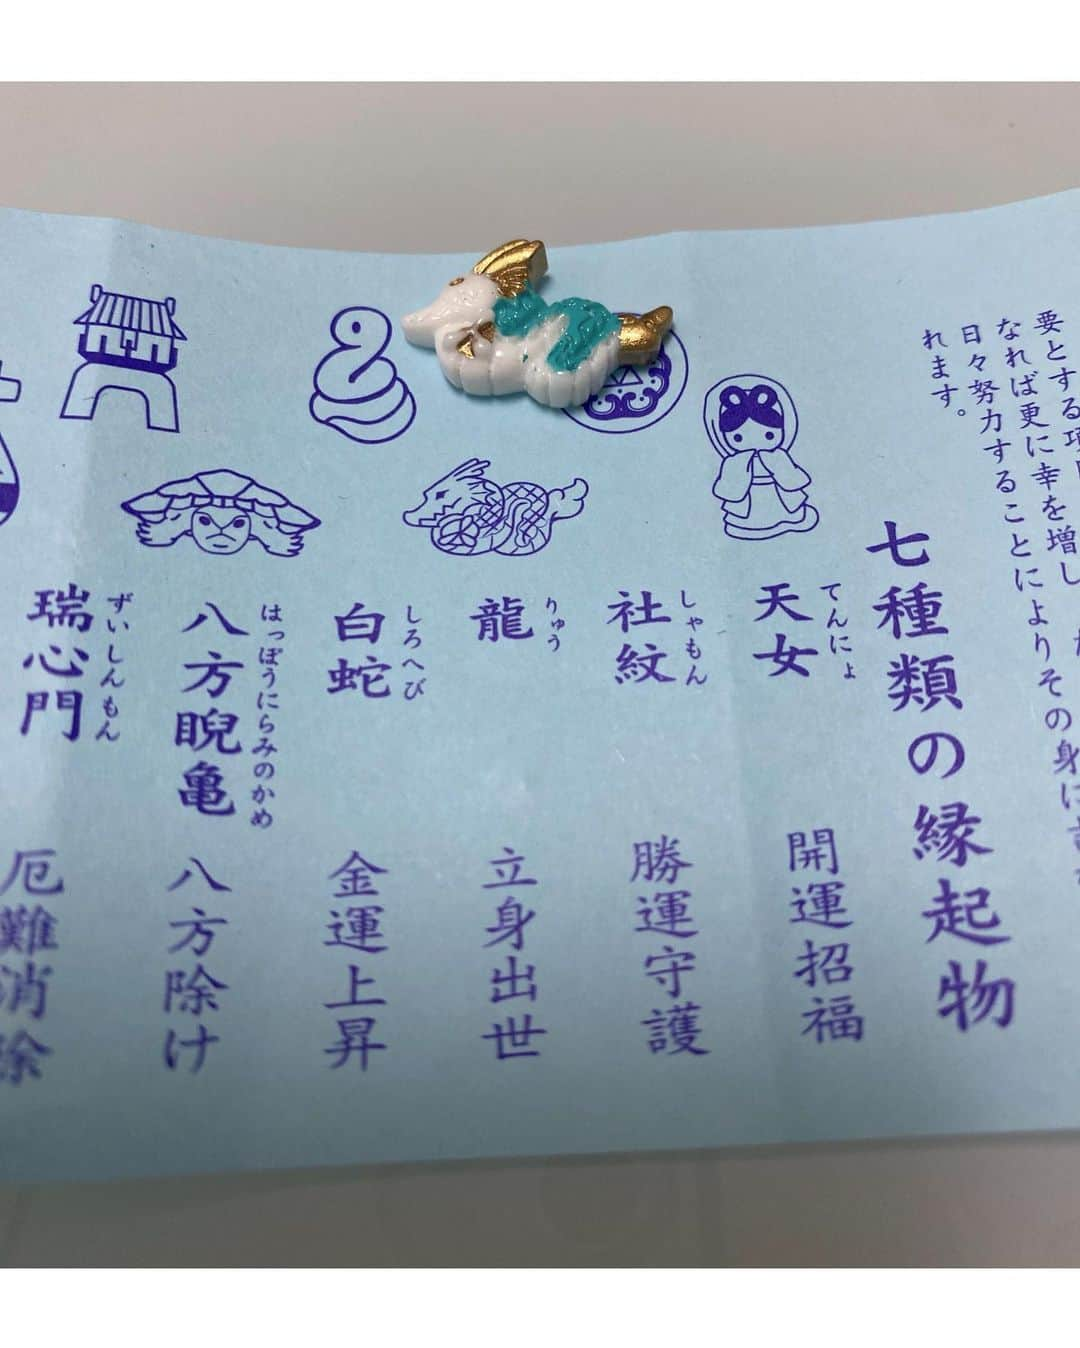 なれば更に幸を増し
日々努力することによりその身に
れます。
七種類の縁起物
天女 てんにょ 開運招福
社紋 しゃもん 勝運守護
龍 りゅう 立身出世
白蛇 しろへび 金運上昇
八方睨亀 はっぽうにらみのかめ 八方除け
瑞心門 ずいしんもん 厄難消除